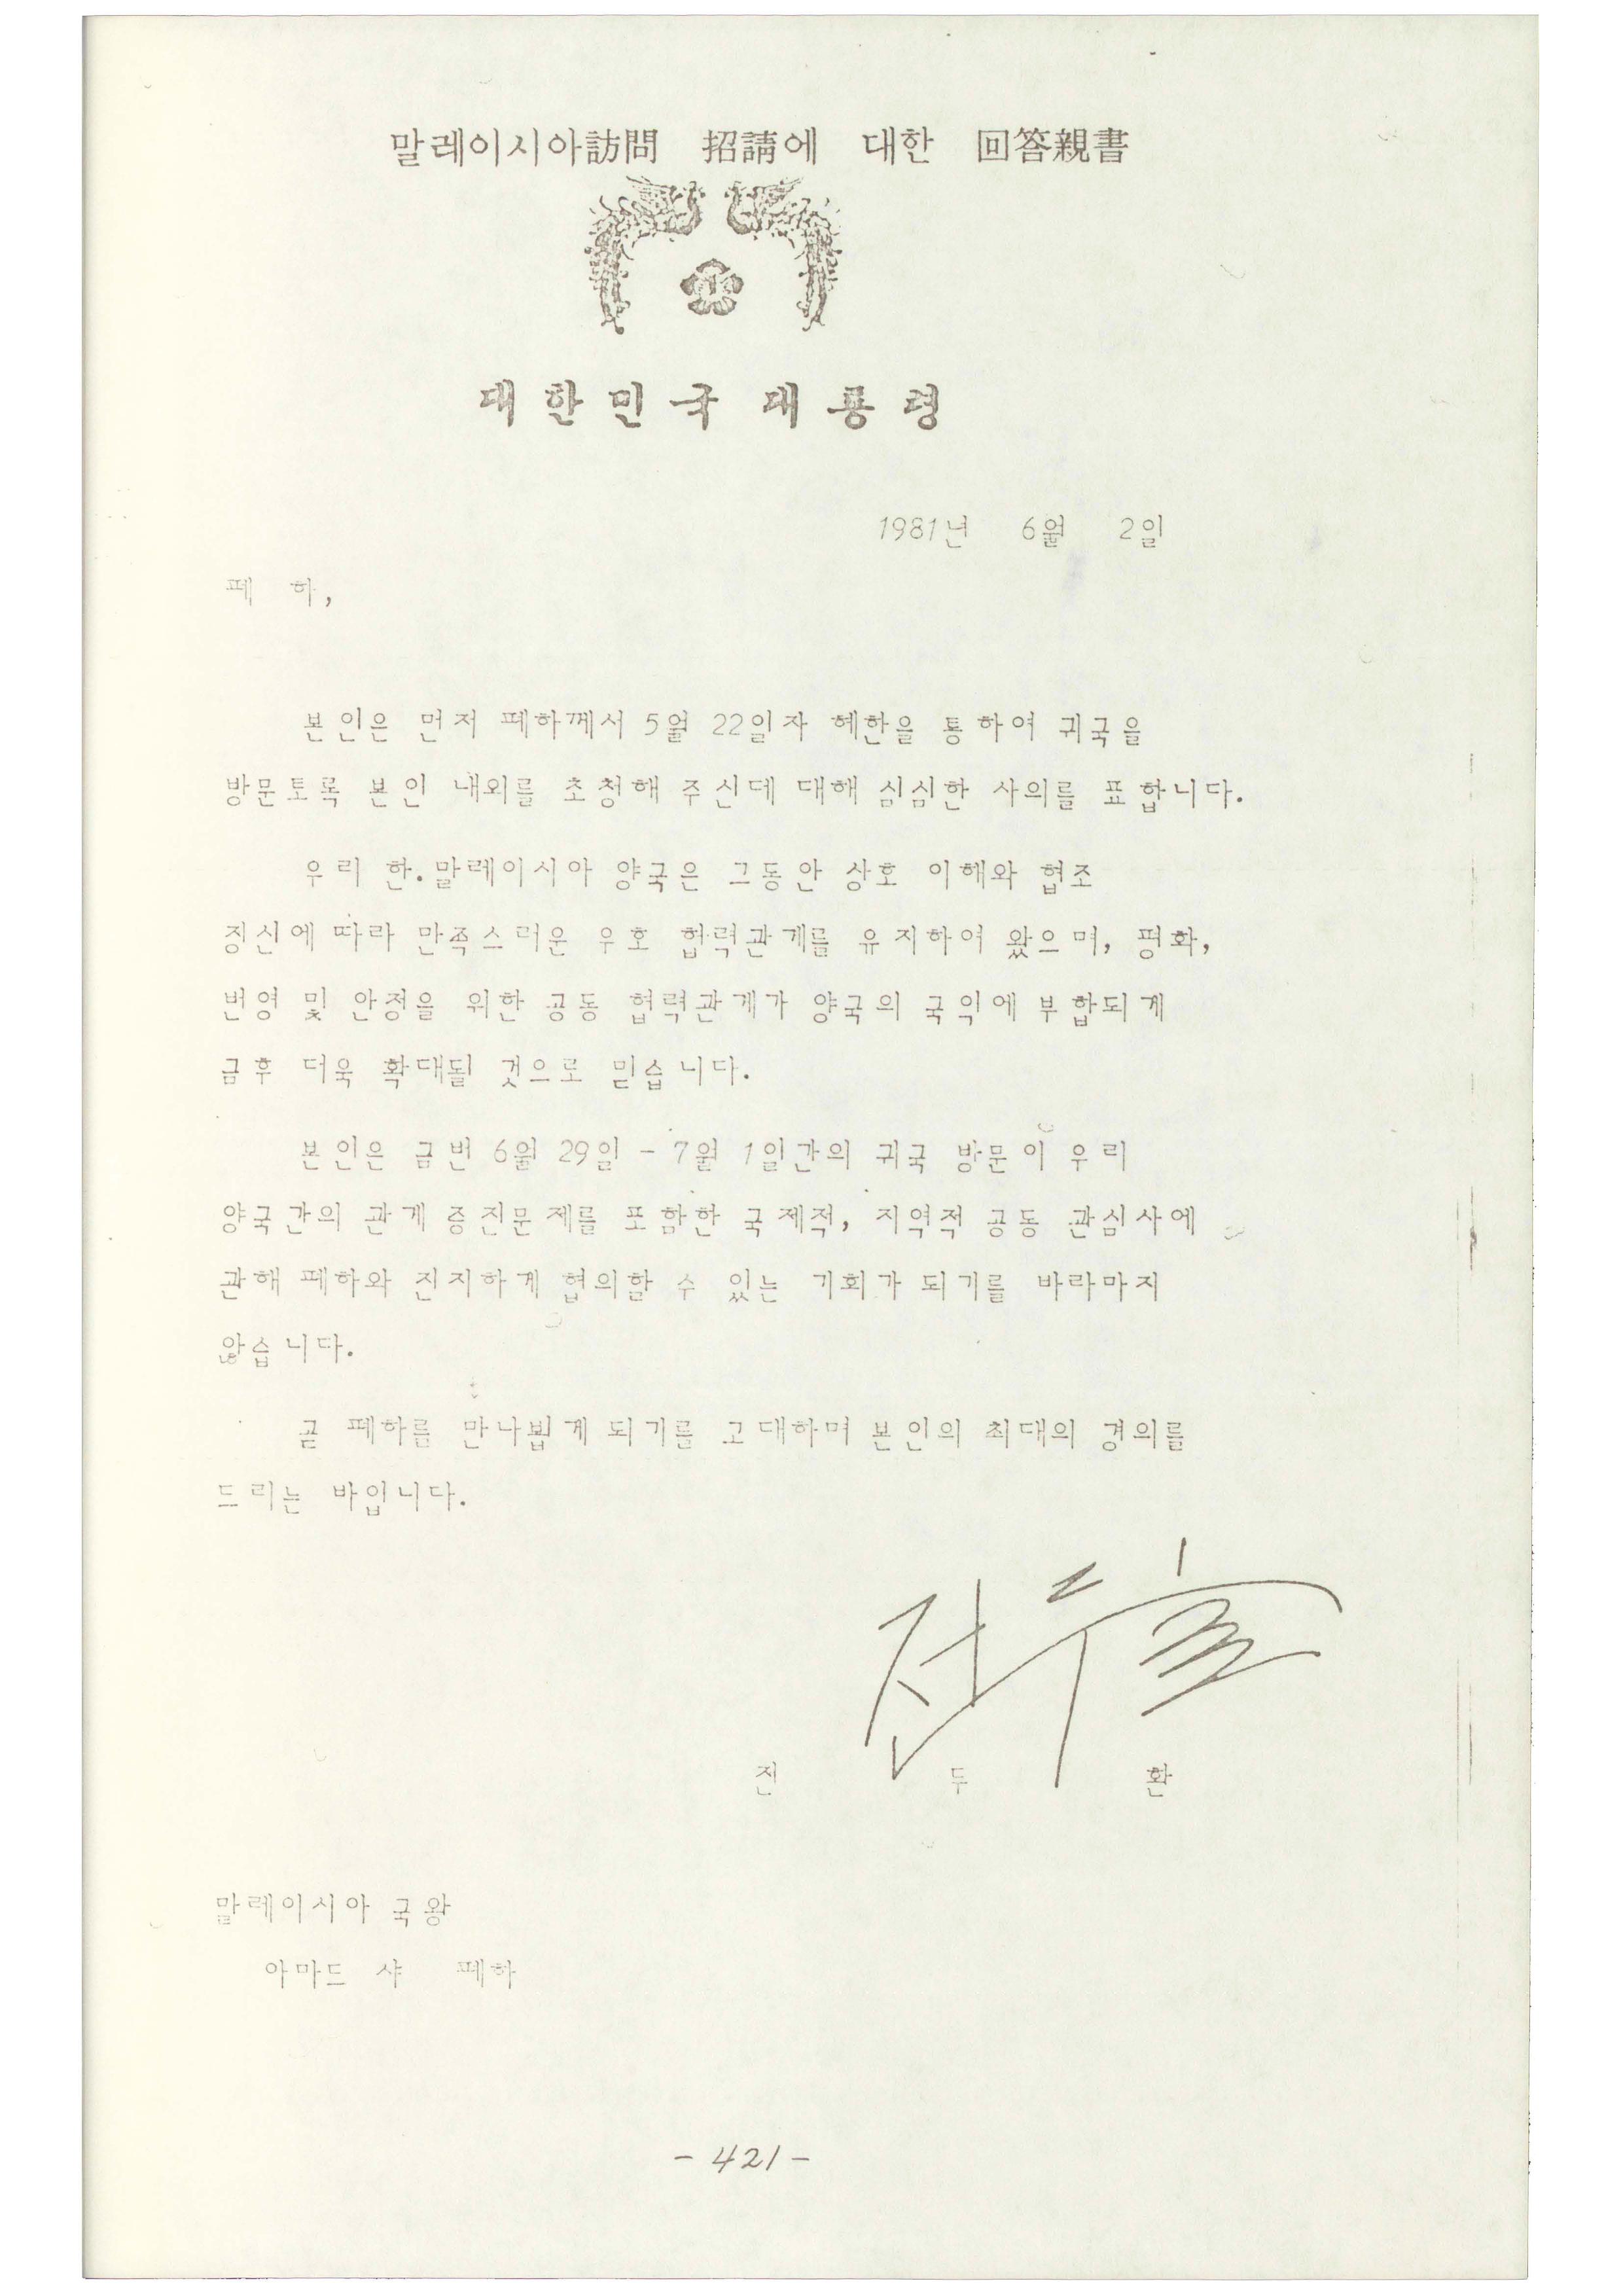 말레이시아訪問 招請에 대한 回答親書
대한민국 대통령
1981년 6월 2일
폐 하,
본인은 먼저 폐하께서 5월 22일자 혜한을 통하여 귀국을
방문토록 본인 내외를 초청해 주신데 대해 심심한 사의를 표합니다.
우리 한.말레이시아 양국은 그동안 상호 이해와 협조
정신에 따라 만족스러운 우호 협력관계를 유지하여 왔으며, 평화,
번영 및 안정을 위한 공동 협력관계가 양국의 국익에 부합되게
금후 더욱 확대될 것으로 믿습니다.
본인은 금번 6월 29일 - 7월 1일간의 귀국 방문이 우리
양국간의 관계 증진문제를 포함한 국제적, 지역적 공동 관심사에
관해 폐하와 진지하게 협의할 수 있는 기회가 되기를 바라마지
않습니다.
곧 폐하를 만나뵙게 되기를 고대하며 본인의 최대의 경의를
드리는 바입니다.
전두환
전 두 환
말레이시아 국왕
아마드 샤 폐하
- 421 -